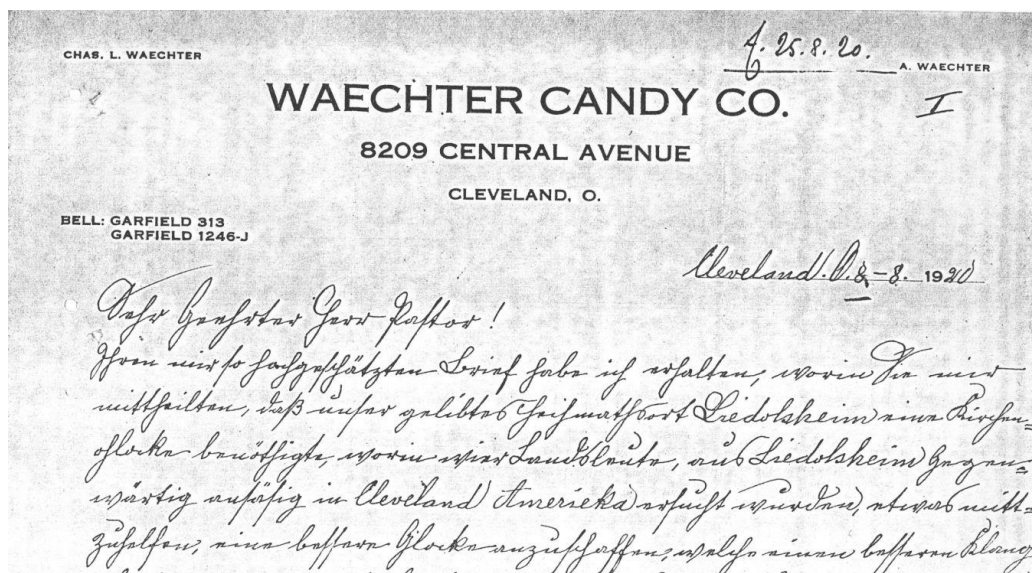 CHAS. L. WAECHTER
25.8.20.
A. WAECHTER
WAECHTER CANDY CO.
I
8209 CENTRAL AVENUE
CLEVELAND, O.
BELL: GARFIELD 313
GARFIELD 1246-J
Cleveland. O. 8-8. 1920
Sehr Geehrter Herr Pastor!
Ihren mir so hochgeschätzten Brief habe ich erhalten, worin Sie mir
mittheilten, daß unser gelibtes Heihmathsort Liedolsheim eine Kirchen=
glocke benöthigte, worin wier Landsleute, aus Liedolsheim Gegen=
wärtig ansäsig in Cleveland Amerieka ersucht wurden, etwas mitt=
zuhelfen, eine bessere Glocke anzuschaffen, welche einen besseren Klang